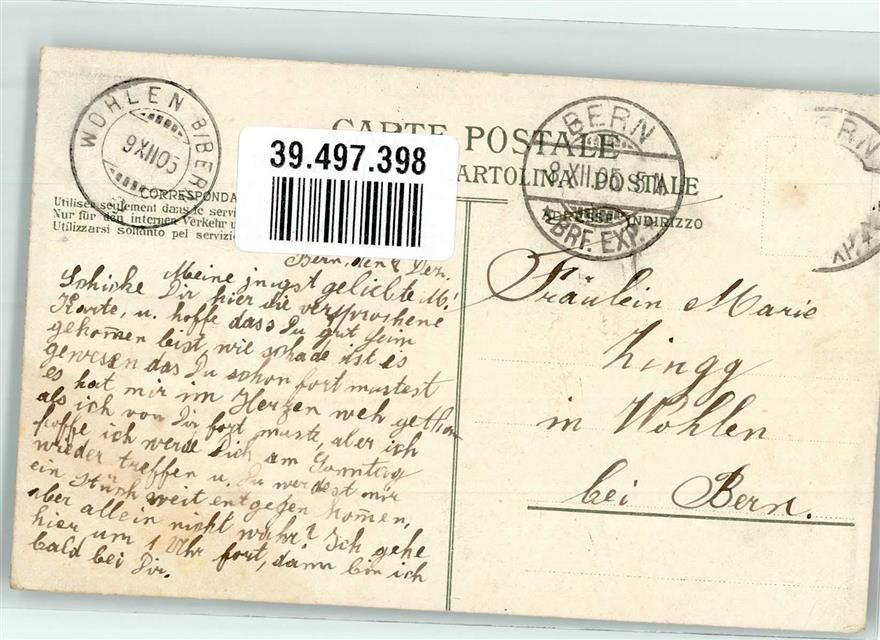 WOHLEN BIBER
9 XII 05
39.497.398
CARTE POSTALE
CARTOLINA POSTALE
BERN
8 XII 05
BRF. EXP.
CORRESPONDA
ADRESSE INDIRIZZO
Utiliser seulement dans le servi
Nur für den internen Verkehr
Utilizzarsi soltanto pel servizio
Bern, den 8 Dez.
Meine jnigst geliebte M!
Schicke Dir hier die versprochene
Karte, u. hoffe dass Du gut heim
gekommen bist, wie schade ist es
gewesen das Du schon fort mustest
es hat mir im Herzen weh gethan
als ich von Dir fort muste, aber ich
hoffe ich werde Dich am Sonntag
wieder treffen u. Du werdest mir
ein Stück weit entgegen kommen,
aber allein nicht wahr? Ich gehe
hier um 1 Uhr fort, dann bin ich
bald bei Dir.
Fräulein Marie
Zingg
in Wohlen
bei Bern.